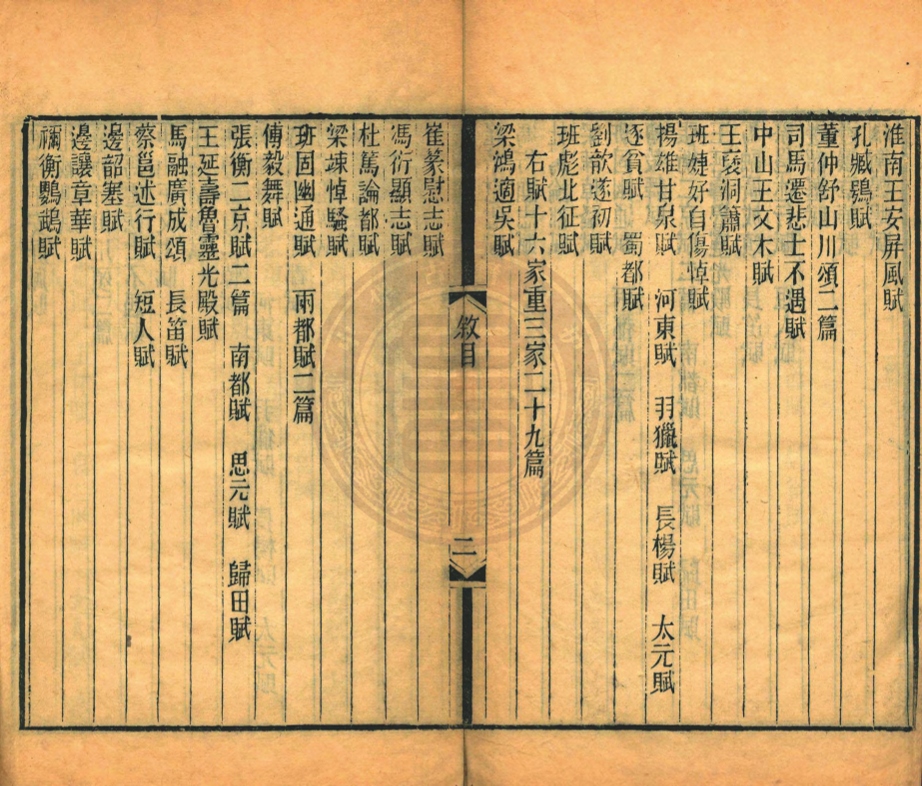 淮南王安屏風賦
孔臧鴞賦
董仲舒山川頌二篇
司馬遷悲士不遇賦
中山王文木賦
王襃洞簫賦
班婕妤自傷悼賦
揚雄甘泉賦　河東賦　羽獵賦　長楊賦　太元賦
逐貧賦　蜀都賦
劉歆遂初賦
班彪北征賦
右賦十六家重三家二十九篇
梁鴻適吳賦
敘目
二
崔篆慰志賦
馮衍顯志賦
杜篤論都賦
梁竦悼騷賦
班固幽通賦　兩都賦二篇
傅毅舞賦
張衡二京賦二篇　南都賦　思元賦　歸田賦
王延壽魯靈光殿賦
馬融廣成頌　長笛賦
蔡邕述行賦　短人賦
邊韶塞賦
邊讓章華賦
禰衡鸚鵡賦